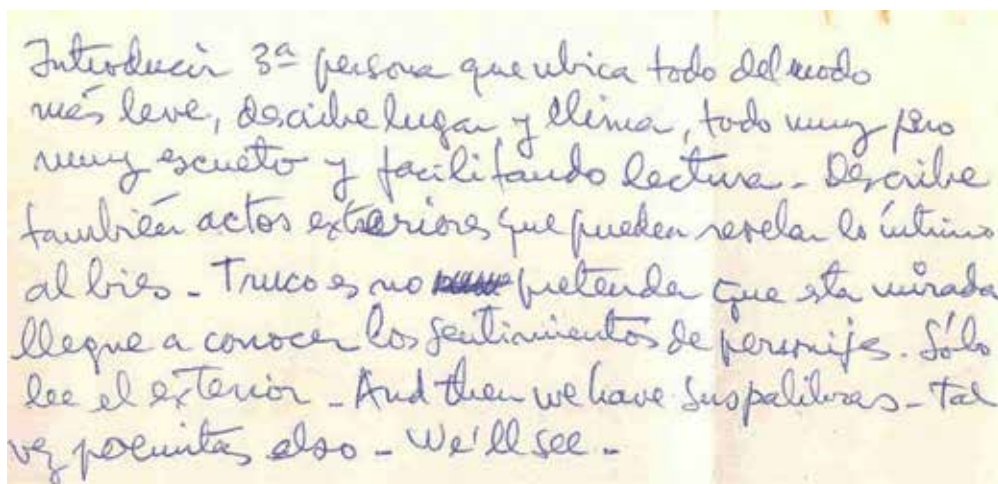 Introducir 3ª persona que ubica todo del modo
más leve, describe lugar y clima, todo muy pero
muy escueto y facilitando lectura - Describe
también actos exteriores que pueden revelar lo íntimo
al bies - Truco es no pretender que esta mirada
llegue a conocer los sentimientos de personajes. Sólo
lee el exterior - And then we have sus palabras - tal
vez poemitas also - We'll see -